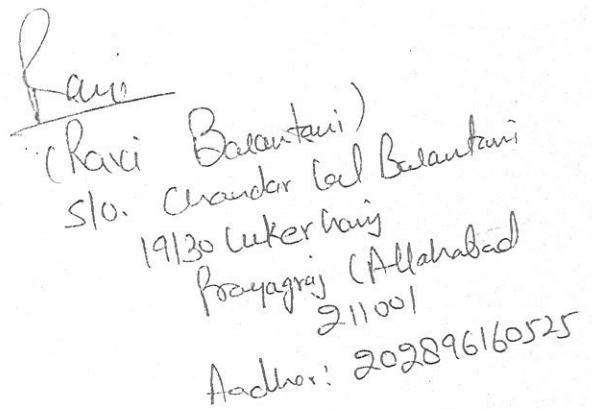 Ravi
(Ravi Basantani)
S/o. Chandar Lal Basantani
19/30 Lukerganj
Prayagraj (Allahabad
211001
Aadhar: 202896160525